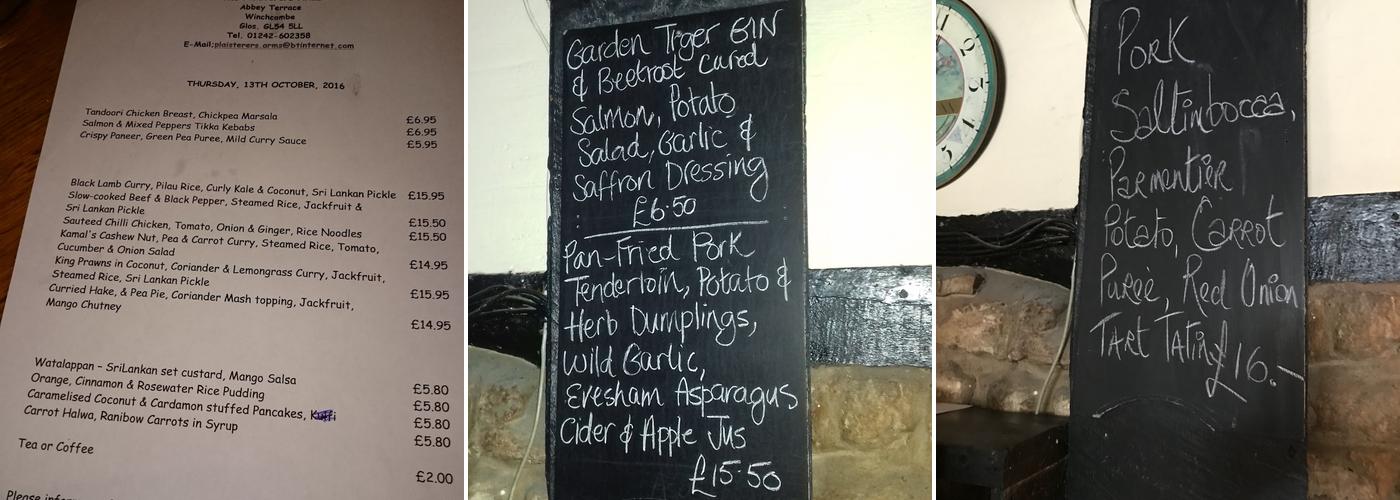 Abbey Terrace
Winchcombe
Glos. GL54 5LL
Tel. 01242-602358
E-Mail;plaisterers.arms@btinternet.com
THURSDAY, 13TH OCTOBER, 2016
Tandoori Chicken Breast, Chickpea Marsala £6.95
Salmon & Mixed Peppers Tikka Kebabs £6.95
Crispy Paneer, Green Pea Puree, Mild Curry Sauce £5.95
Black Lamb Curry, Pilau Rice, Curly Kale & Coconut, Sri Lankan Pickle £15.95
Slow-cooked Beef & Black Pepper, Steamed Rice, Jackfruit &
Sri Lankan Pickle £15.50
Sauteed Chilli Chicken, Tomato, Onion & Ginger, Rice Noodles £15.50
Kamal's Cashew Nut, Pea & Carrot Curry, Steamed Rice, Tomato,
Cucumber & Onion Salad £14.95
King Prawns in Coconut, Coriander & Lemongrass Curry, Jackfruit,
Steamed Rice, Sri Lankan Pickle £15.95
Curried Hake, & Pea Pie, Coriander Mash topping, Jackfruit,
Mango Chutney £14.95
Watalappan – SriLankan set custard, Mango Salsa £5.80
Orange, Cinnamon & Rosewater Rice Pudding £5.80
Caramelised Coconut & Cardamon stuffed Pancakes, £5.80
Carrot Halwa, Ranibow Carrots in Syrup £5.80
Tea or Coffee £2.00
Please
Garden Tiger GIN
& Beetroot cured
Salmon, Potato
Salad, Garlic &
Saffron Dressing
£6.50
Pan-Fried Pork
Tenderloin, Potato &
Herb Dumplings,
Wild Garlic,
Evesham Asparagus
Cider & Apple Jus
£15.50
Pork
Saltimbocca,
Parmentier
Potato, Carrot
Pureé, Red Onion
TART TATIN £16.-